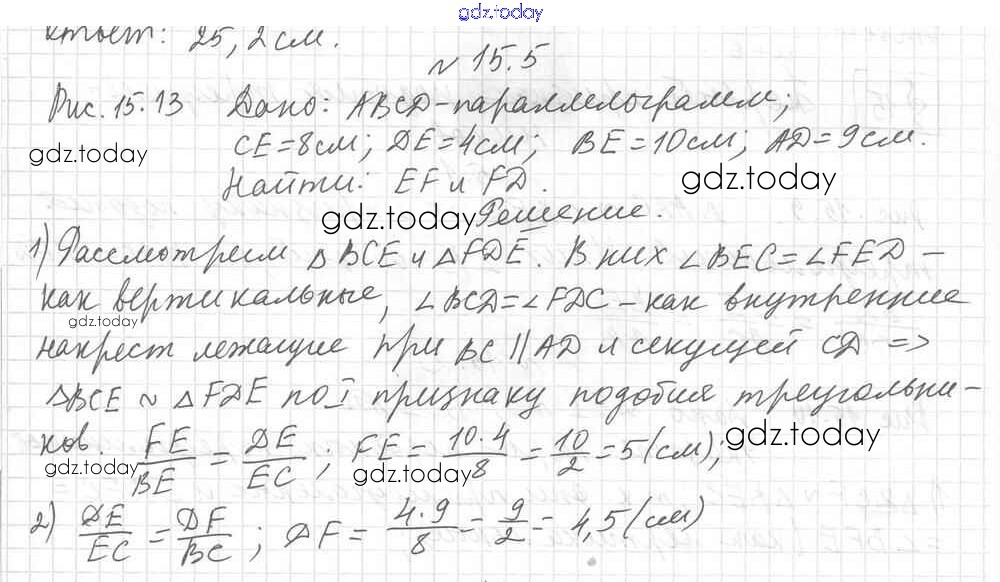 gdz.today
Ответ: 25,2 см.
№ 15.5
Рис. 15.13 Дано: ABCD-параллелограмм;
CE=8см; DE=4см; BE=10см; AD=9см.
gdz.today
Найти: EF и FD.
gdz.today
gdz.today
Решение.
1) Рассмотрим △BCE и △FDE. В них ∠BEC=∠FED –
как вертикальные, ∠BCD=∠FDC – как внутренние
gdz.today
накрест лежащие при BC || AD и секущей CD =>
△BCE ~ △FDE по I признаку подобия треугольни-
ков. FE/BE = DE/EC; FE = 10·4/8 = 10/2 = 5 (см);
gdz.today
gdz.today
gdz.today
2) DE/EC = DF/BC; DF = 4·9/8 = 9/2 = 4,5 (см)